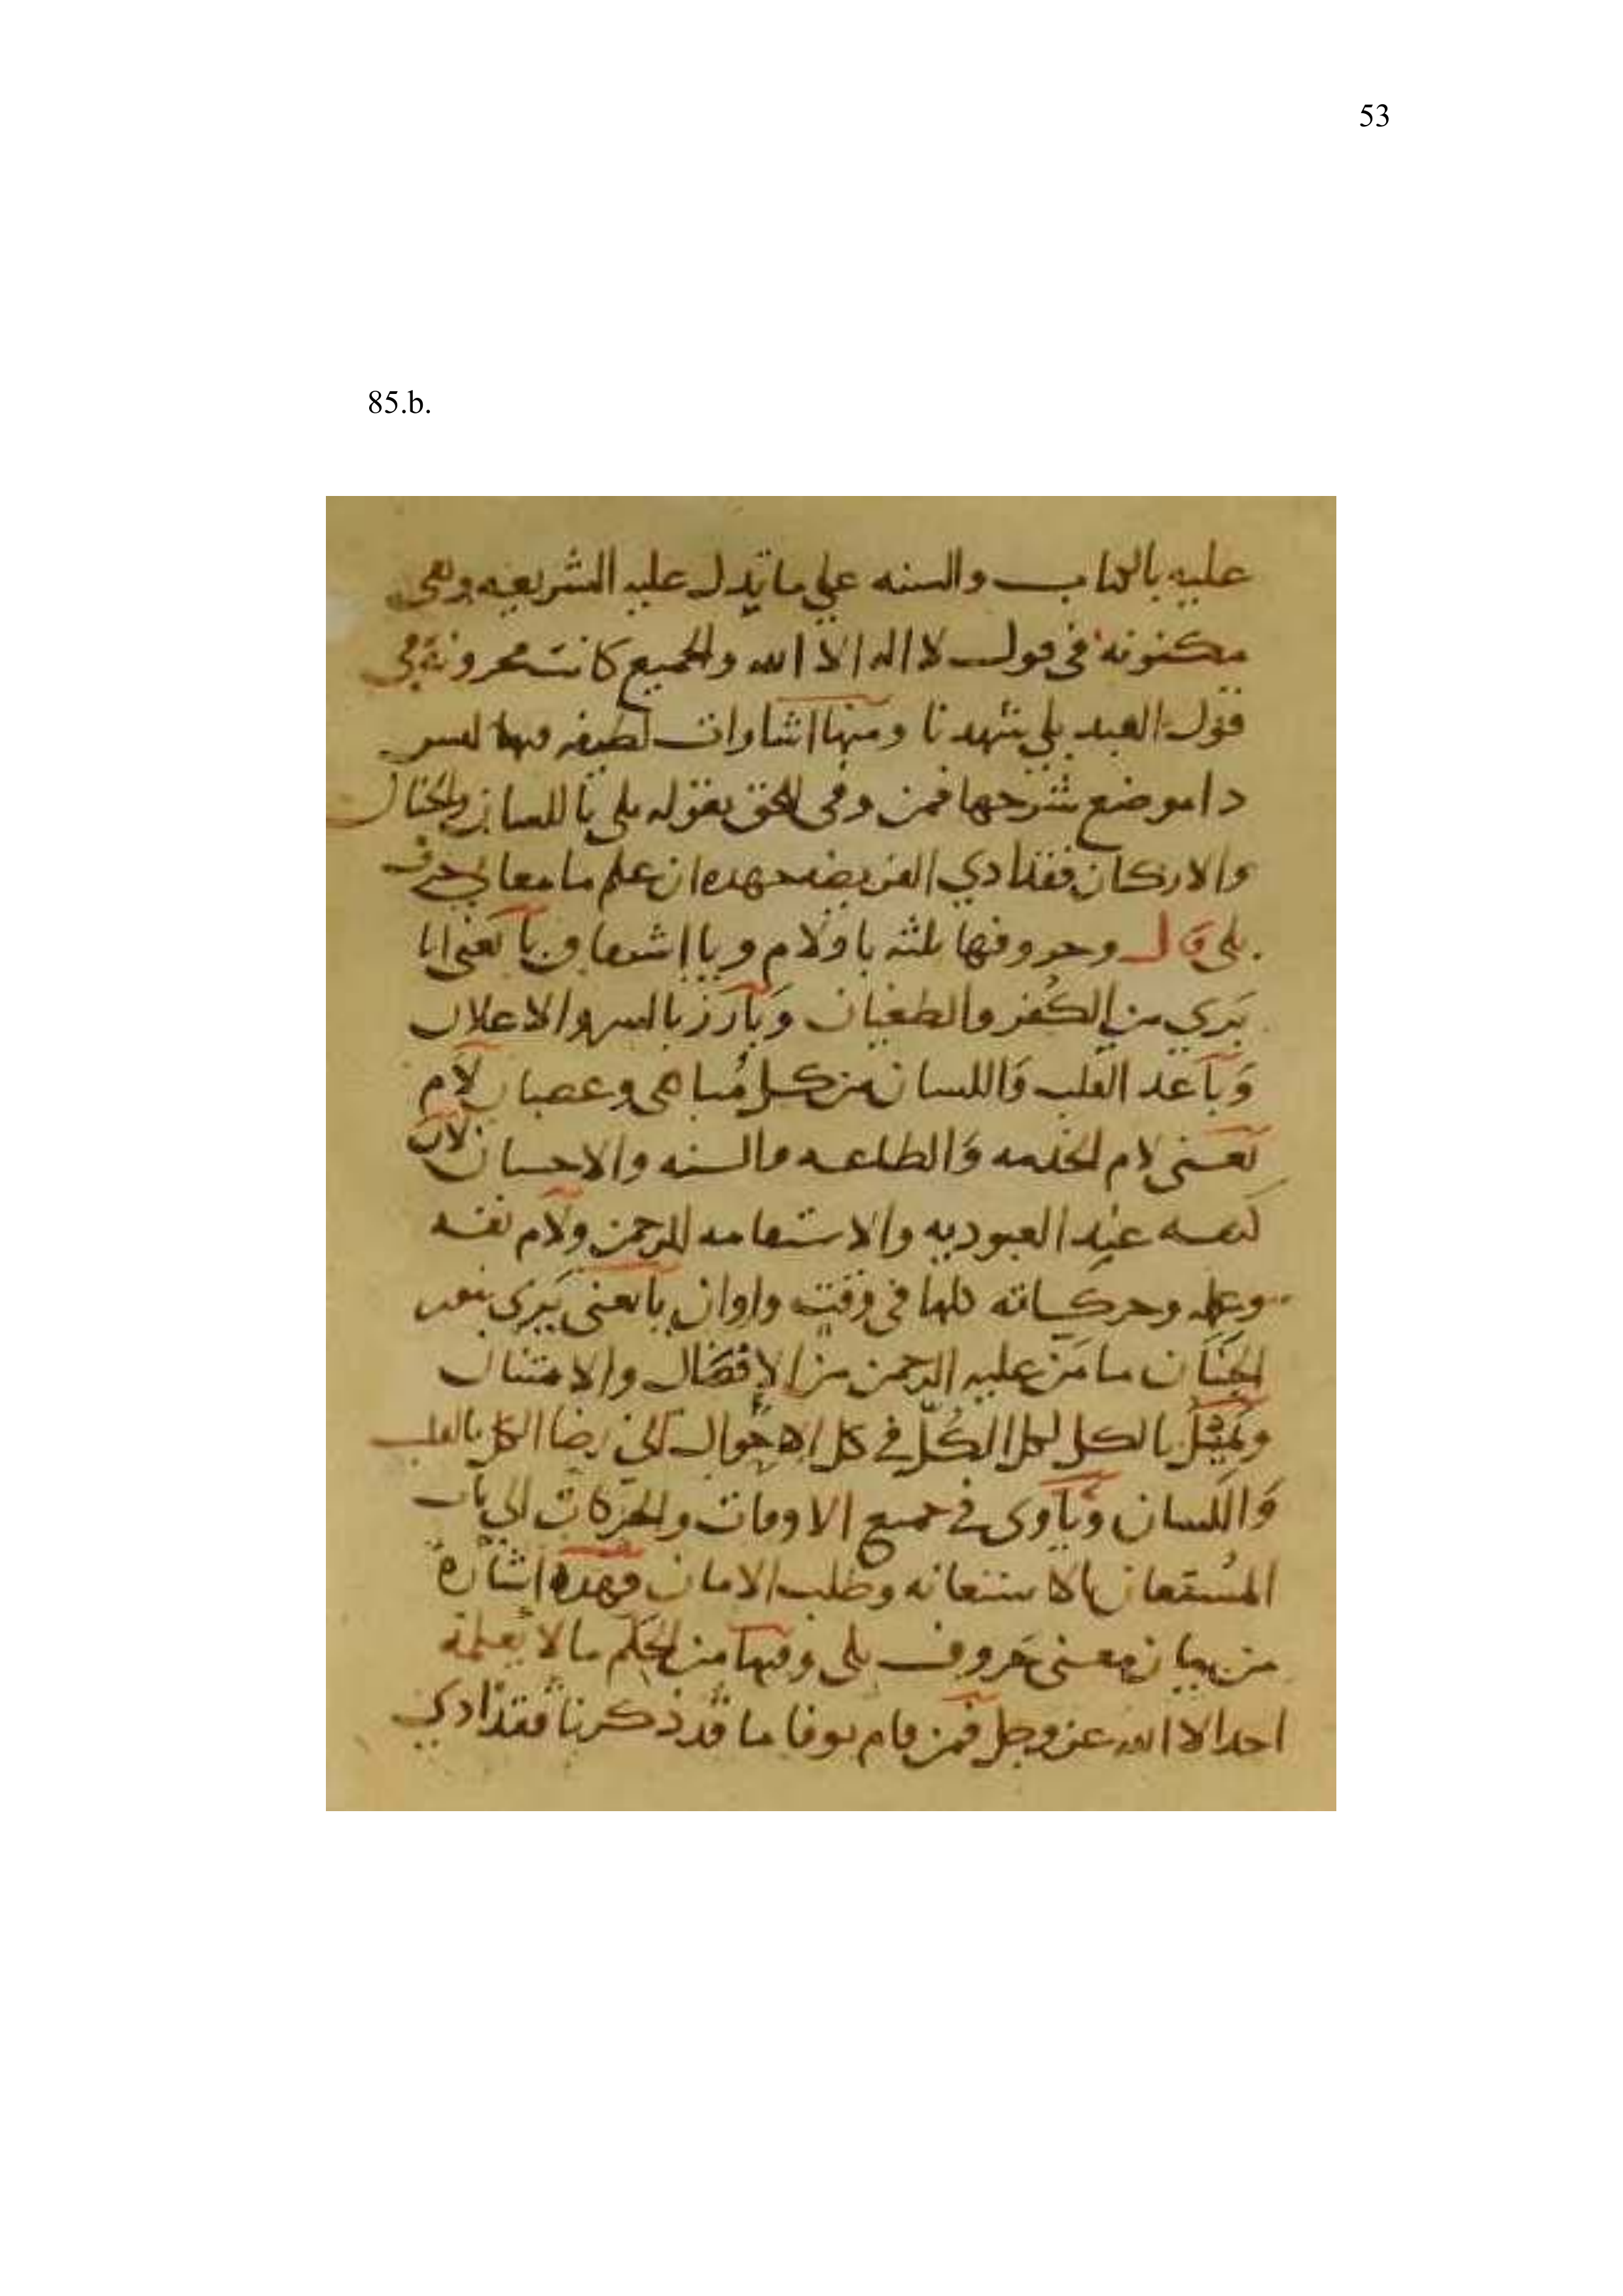 53
85.b.
عليه بالكتاب والسنه علي ما تدل عليه الشريعه وهي
مكنونه في قول لا اله الا الله والجميع كانت مخزونة في
قول العبد بلي شهدنا ومنها اشارات لطيفه فيها ليس
ذا موضع شرحها فمن وفي الحق بقوله بلي باللسان والجنان
والاركان فقد ادي الفريضه جهده ان علم ما معاني حرف
بلي قال وحروفها ثلثه با ولام ويا اشقاق با تعني انا
بري من الكفر والطغيان وبارز بالسر والاعلان
وباعد القلب واللسان من كل مناهي وعصيان لام
تعني لام الخدمه والطاعه والسنه والاحسان لان
نفسه عند العبوديه والاستقامه للرحمن ولام نفسه
وعمله وحركاته كلها في وقت واوان يا تعني يري بنور
الجنان ما من عليه الرحمن من الافضال والامتنان
بالكل لكل الكل في كل الاحوال الي رضا الكل بالقلب
واللسان وياوي في جميع الاوقات والحركات الي باب
المستعان بالاستعانه وطلب الامان فهذه اشارة
من بيان معني حروف بلي وفيها من الحكم ما لا يعلمه
احد الا الله عز وجل فمن قام بوفا ما قد ذكرنا فقد ادي